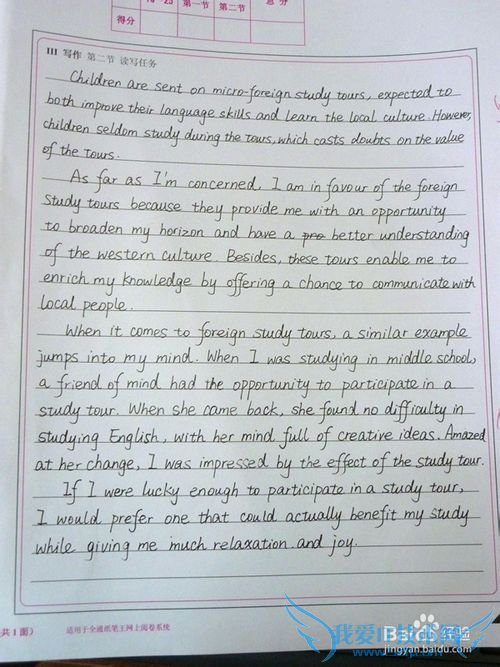 16-25 第一节 第二节 总分
得分
III 写作 第二节 读写任务
Children are sent on micro-foreign study tours, expected to
both improve their language skills and learn the local culture. However,
children seldom study during the tours, which casts doubts on the value
of the tours.
As far as I'm concerned, I am in favour of the foreign
study tours because they provide me with an opportunity
to broaden my horizon and have a pro better understanding
of the western culture. Besides, these tours enable me to
enrich my knowledge by offering a chance to communicate with
local people.
When it comes to foreign study tours, a similar example
jumps into my mind. When I was studying in middle school,
a friend of mind had the opportunity to participate in a
study tour. When she came back, she found no difficulty in
studying English, with her mind full of creative ideas. Amazed
at her change, I was impressed by the effect of the study tour.
If I were lucky enough to participate in a study tour,
I would prefer one that could actually benefit my study
while giving me much relaxation and joy.
共1面) 适用于全通纸笔王网上阅卷系统
Baidu 经验
jingyan.baidu.com